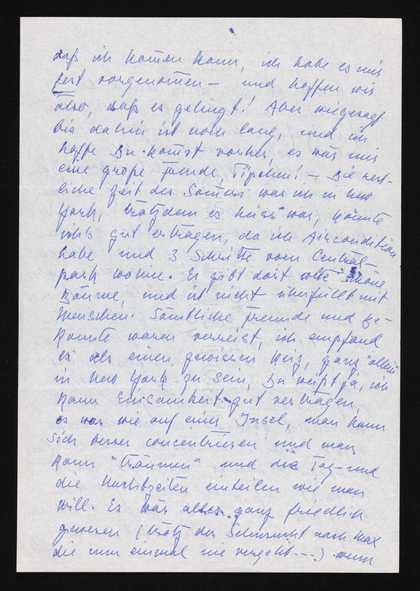 daß ich kommen kann, ich habe es mir
fest vorgenommen — und hoffen wir
also, daß es gelingt! Aber wiegesagt
bis dahin ist noch lang, und ich
hoffe Du kommst vorher, es wär mir
eine große Freude, Tipchen! — Die rest-
liche Zeit des Sommers war ich in New
York, trotzdem es heiss war, konnte
ichs gut ertragen, da ich Aircondition
habe und 3 Schritte vom Central-
park wohne. Es gibt dort schöne
Bäume, und ist nicht überfüllt mit
Menschen. Sämtliche Freunde und Be-
kannte waren verreist, ich empfand
es als einen gewissen Reiz, ganz "allein"
in New York zu sein, Du weißt ja, ich
kann Einsamkeit gut vertragen,
es war wie auf einer Insel, man kann
sich besser concentrieren und man
kann "träumen" und die Tag- und
die Nachtzeiten einteilen wie man
will. Es war alles ganz friedlich
gewesen (trotz der Sehnsucht nach Max
die nun einmal nie vergeht---) wenn